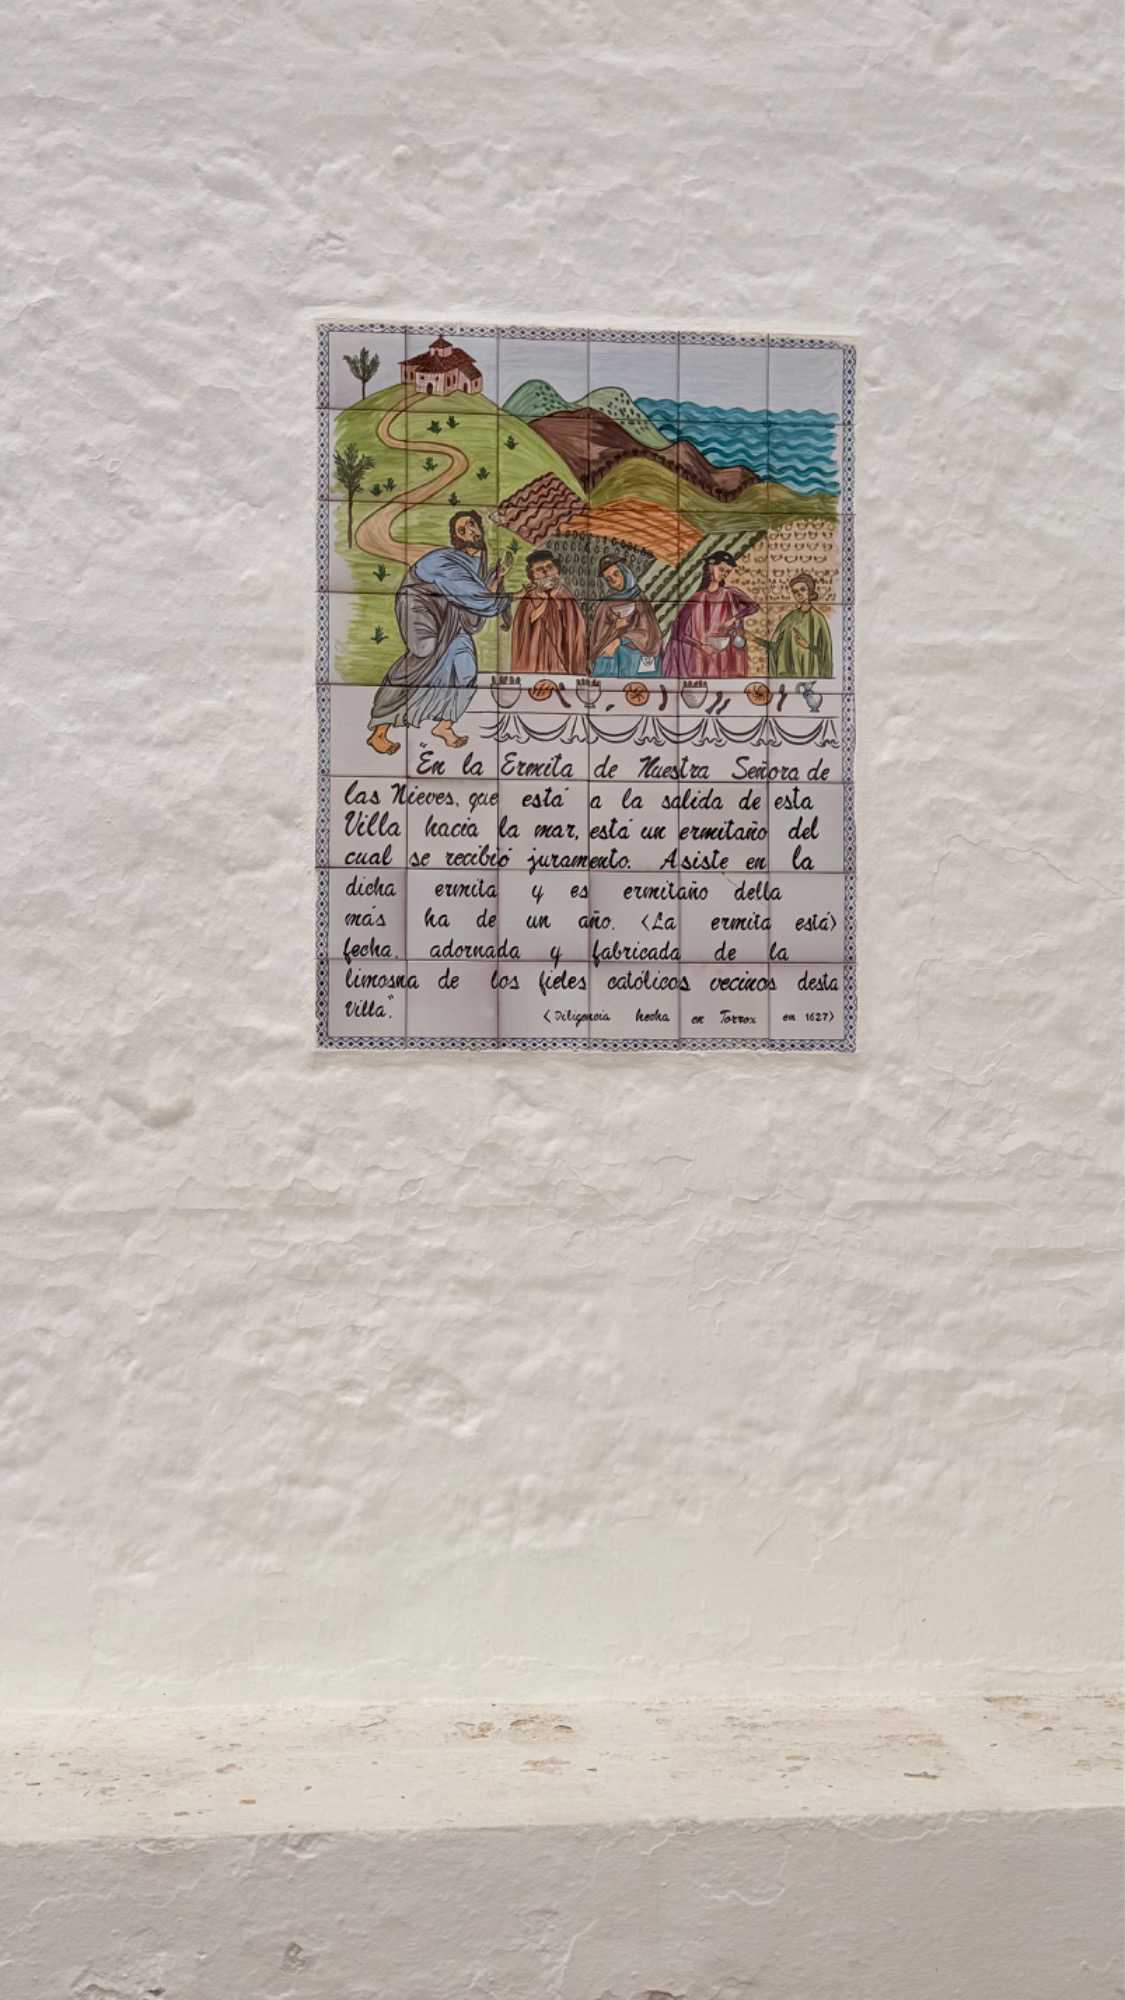 "En la Ermita de Nuestra Señora de
las Nieves, que está a la salida de esta
Villa hacia la mar, está un ermitaño del
cual se recibió juramento. Asiste en la
dicha ermita y es ermitaño della
más ha de un año. <La ermita está>
fecha, adornada y fabricada de la
limosna de los fieles católicos vecinos desta
Villa".
<Diligencia hecha en Torrox en 1627>